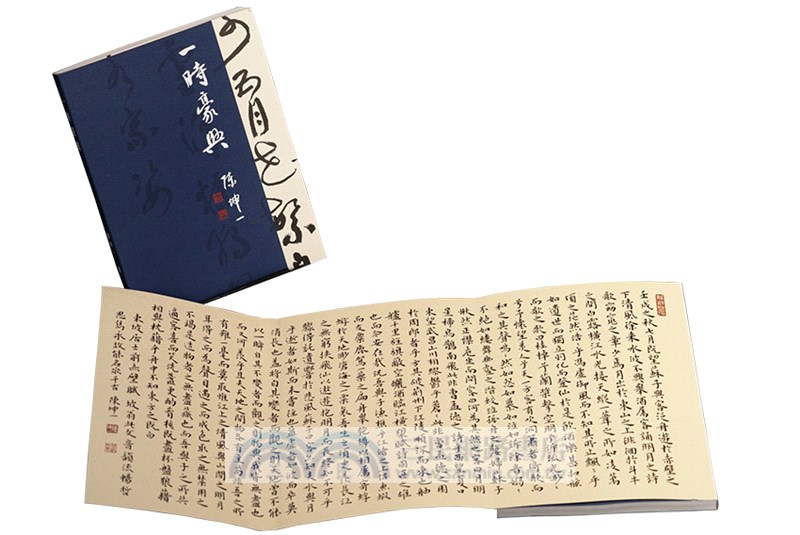 一時豪興
陳坤一
壬戌之秋七月既望蘇子與客泛舟遊於赤壁之
下清風徐來水波不興舉酒屬客誦明月之詩
歌窈窕之章少焉月出於東山之上徘徊於斗牛
之間白露橫江水光接天縱一葦之所如凌萬
頃之茫然浩浩乎馮虛御風而不知其所止飄飄乎
如遺世獨立羽化而登仙於是飲酒樂甚扣舷
而歌之歌曰桂棹兮蘭槳擊空明兮泝流光渺渺
兮予懷望美人兮天一方客有吹洞簫者倚歌而
和之其聲嗚嗚然如怨如慕如泣如訴餘音嫋嫋
不絕如縷舞幽壑之潛蛟泣孤舟之嫠婦蘇子
愀然正襟危坐而問客曰何為其然也客曰月明
星稀烏鵲南飛此非曹孟德之詩乎西望夏口
東望武昌山川相繆鬱乎蒼蒼此非孟德之困
於周郎者乎方其破荊州下江陵順流而東也舳
艫千里旌旗蔽空釃酒臨江橫槊賦詩固一世之雄
也而今安在哉況吾與子漁樵於江渚之上侶魚蝦
而友麋鹿駕一葉之扁舟舉匏樽以相屬寄蜉
蝣於天地渺滄海之一粟哀吾生之須臾羨長江
之無窮挾飛仙以遨遊抱明月而長終知不可乎
驟得託遺響於悲風蘇子曰客亦知夫水與月
乎逝者如斯而未嘗往也盈虛者如彼而卒莫
消長也蓋將自其變者而觀之則天地曾不能
以一瞬自其不變者而觀之則物與我皆無盡也
而又何羨乎且夫天地之間物各有主苟非吾之所
有雖一毫而莫取惟江上之清風與山間之明月
耳得之而為聲目遇之而成色取之無禁用之
不竭是造物者之無盡藏也而吾與子之所共
適客喜而笑洗盞更酌肴核既盡杯盤狼藉
相與枕藉乎舟中不知東方之既白
東坡居士前赤壁賦
故能名家千古 陳坤一